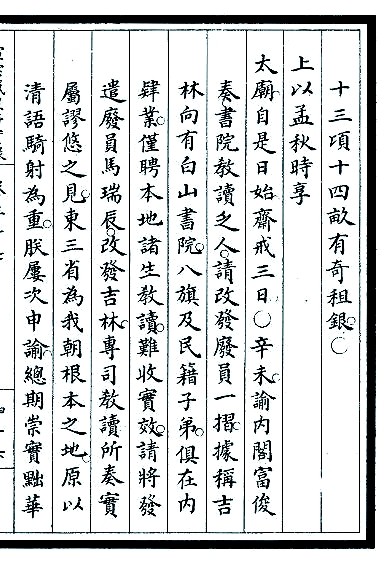 十三頃十四畝有奇租銀○
上以孟秋時享
太廟自是日始齋戒三日○辛未諭內閣富俊
奏書院教讀乏人請改發廢員一摺據稱吉
林向有白山書院八旗及民籍子弟俱在內
肄業僅聘本地諸生教讀難收實效請將發
遣廢員馬瑞辰改發吉林專司教讀所奏實
屬謬悠之見東三省為我朝根本之地原以
清語騎射為重朕屢次申諭總期崇實黜華